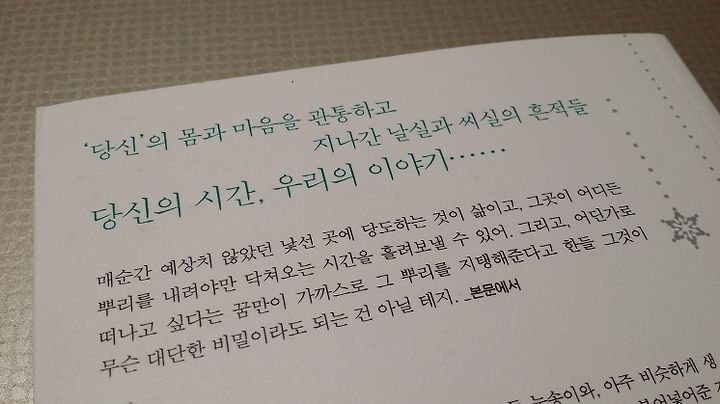 ‘당신’의 몸과 마음을 관통하고
지나간 날실과 씨실의 흔적들
당신의 시간, 우리의 이야기……
매순간 예상치 않았던 낯선 곳에 당도하는 것이 삶이고, 그곳이 어디든
뿌리를 내려야만 닥쳐오는 시간을 흘려보낼 수 있어. 그리고, 어딘가로
떠나고 싶다는 꿈만이 가까스로 그 뿌리를 지탱해준다고 한들 그것이
무슨 대단한 비밀이라도 되는 건 아닐 테지. _본문에서
눈송이와, 아주 비슷하게 생